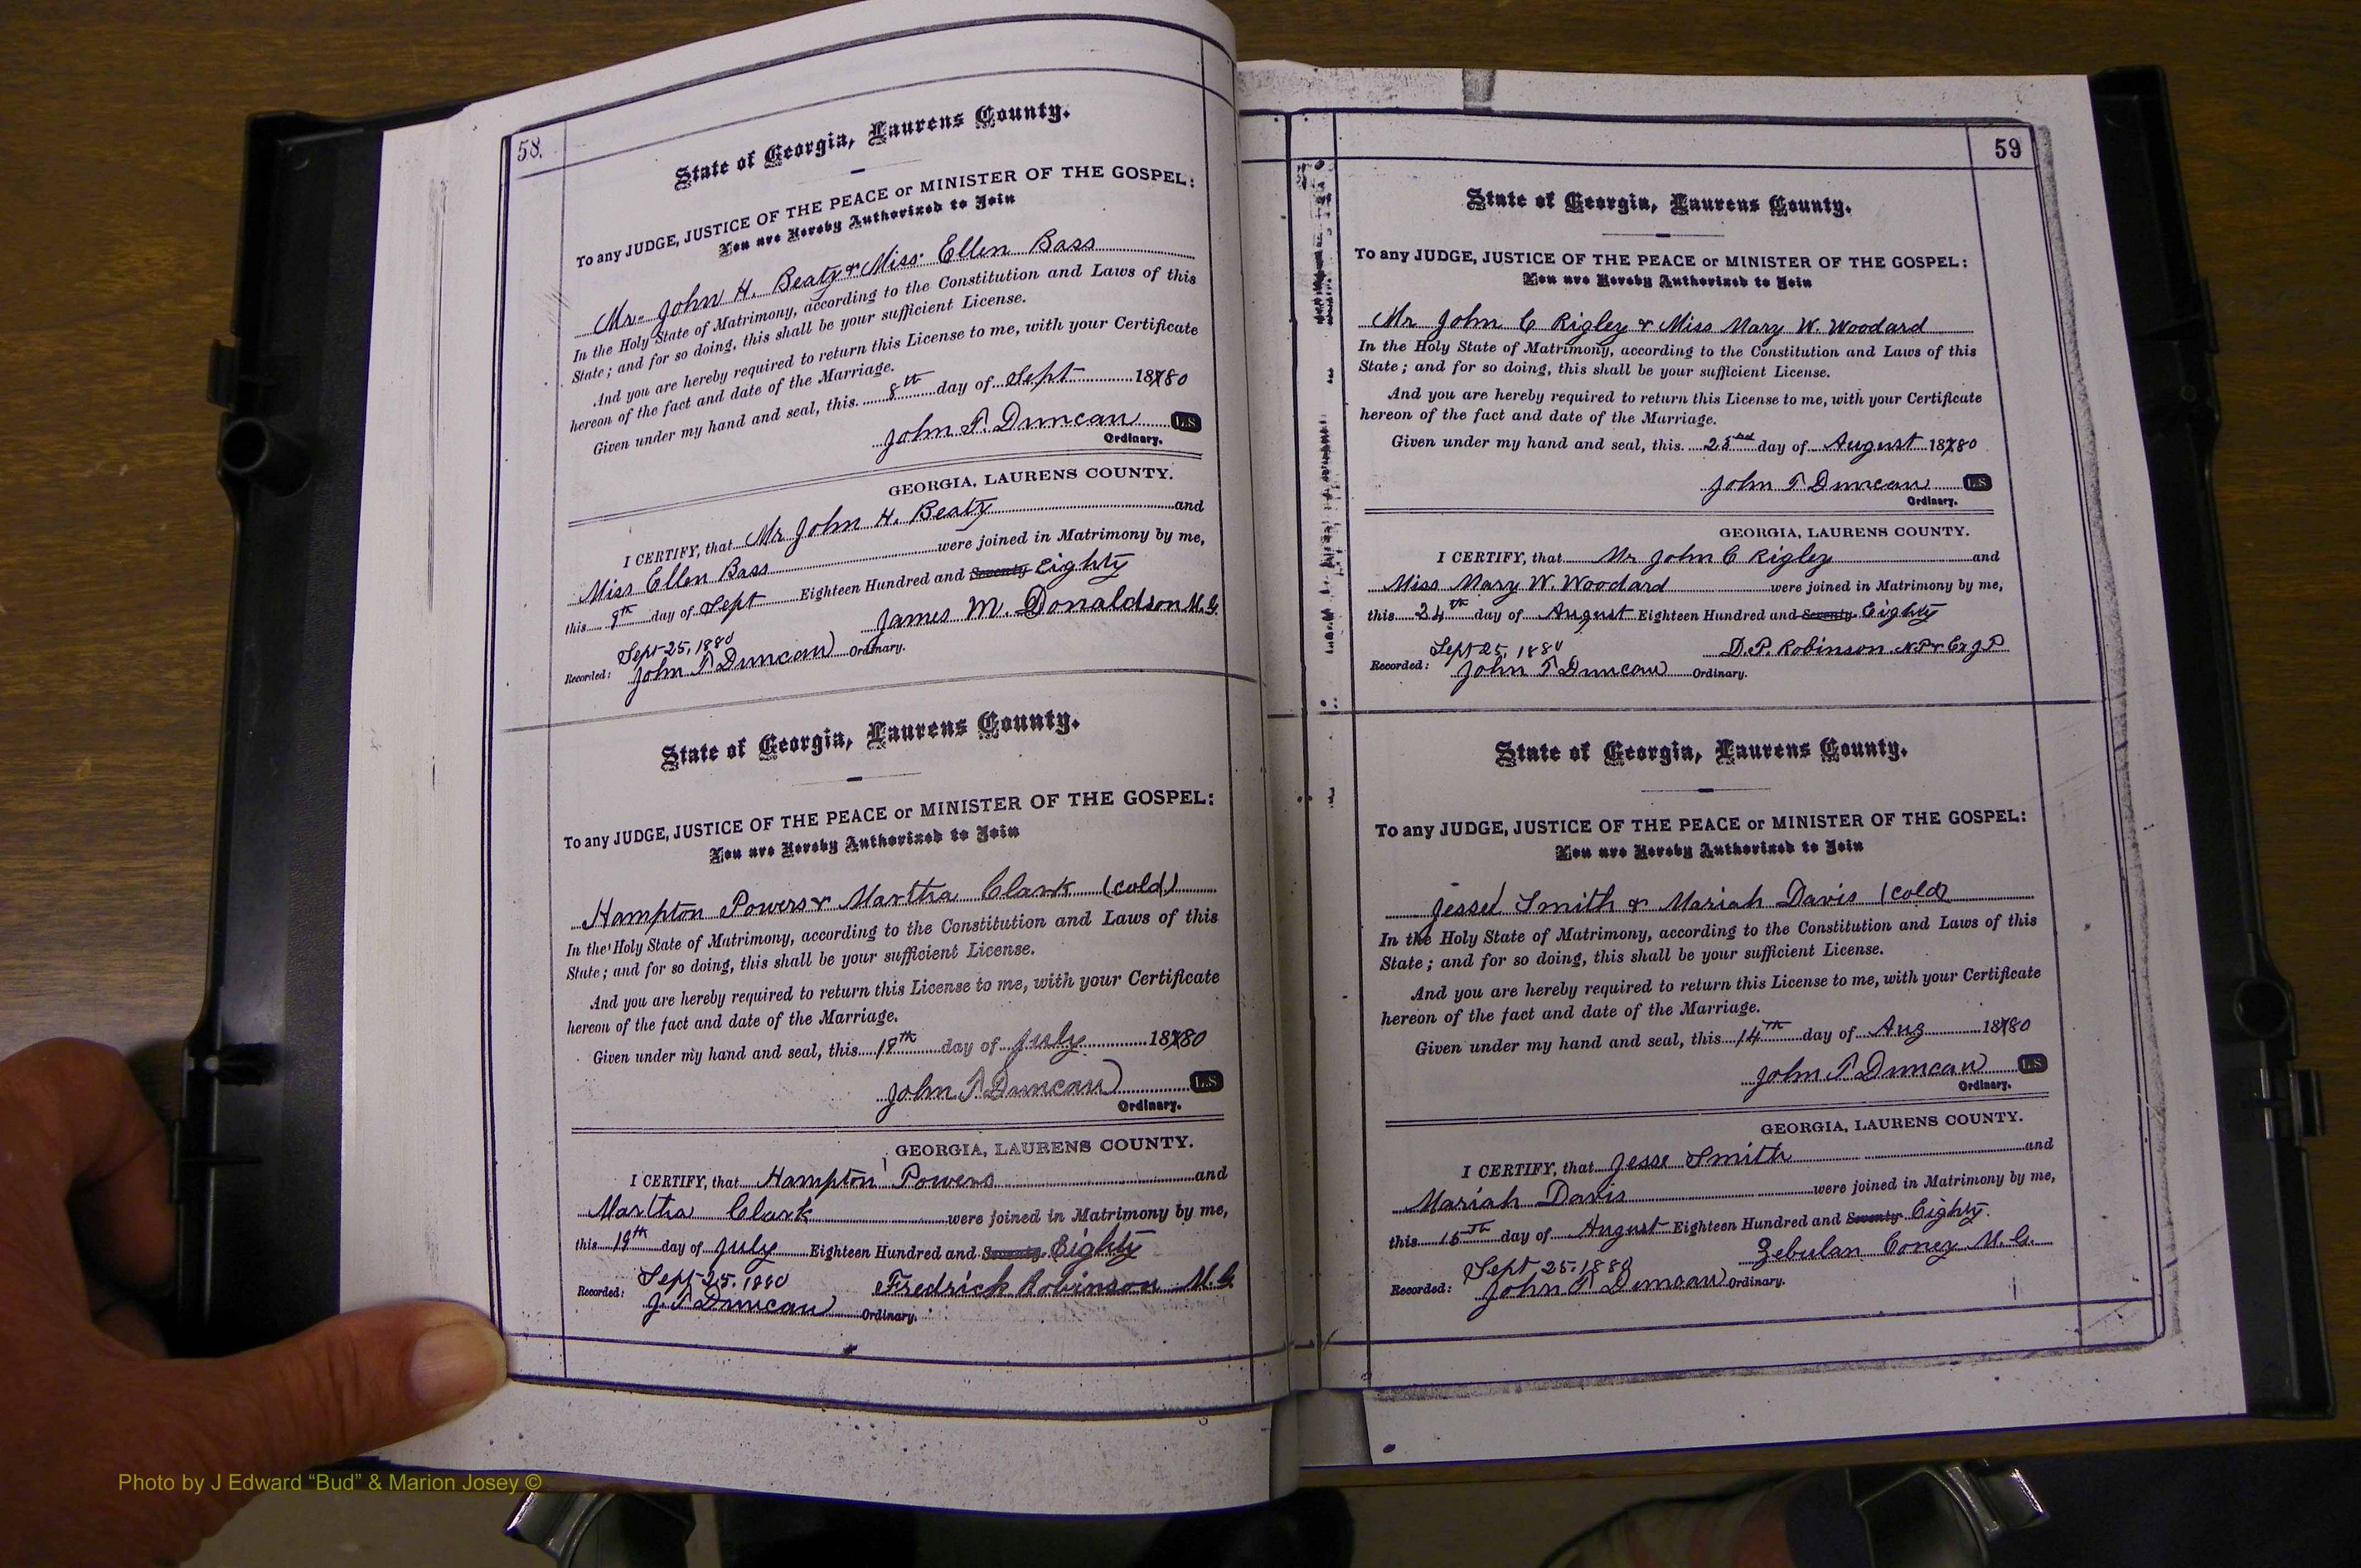 58.
State of Georgia, Laurens County.
To any JUDGE, JUSTICE OF THE PEACE or MINISTER OF THE GOSPEL:
You are Hereby Authorized to Join
Mr. John H. Beaty & Miss Ellen Bass
In the Holy State of Matrimony, according to the Constitution and Laws of this
State; and for so doing, this shall be your sufficient License.
And you are hereby required to return this License to me, with your Certificate
hereon of the fact and date of the Marriage.
Given under my hand and seal, this 8th day of Sept 18780
John T. Duncan L.S
Ordinary.
GEORGIA, LAURENS COUNTY.
I CERTIFY, that Mr John H. Beaty and
Miss Ellen Bass were joined in Matrimony by me,
this 9th day of Sept Eighteen Hundred and Seventy Eighty
James M. Donaldson M.G.
Sept 25, 1880
Recorded: John T Duncan Ordinary.
State of Georgia, Laurens County.
To any JUDGE, JUSTICE OF THE PEACE or MINISTER OF THE GOSPEL:
You are Hereby Authorized to Join
Hampton Powers & Martha Clark (cold)
In the Holy State of Matrimony, according to the Constitution and Laws of this
State; and for so doing, this shall be your sufficient License.
And you are hereby required to return this License to me, with your Certificate
hereon of the fact and date of the Marriage.
Given under my hand and seal, this day of July 18780
John T Duncan L.S
Ordinary.
GEORGIA, LAURENS COUNTY.
I CERTIFY, that Hampton Powers and
Martha Clark were joined in Matrimony by me,
this 19th day of July Eighteen Hundred and Seventy Eighty
Sept 25. 1880 Fredrick Robinson M.G.
Recorded: J T Duncan Ordinary.
59
State of Georgia, Laurens County.
To any JUDGE, JUSTICE OF THE PEACE or MINISTER OF THE GOSPEL:
You are Hereby Authorized to Join
Mr John C Rigley & Miss Mary W. Woodard
In the Holy State of Matrimony, according to the Constitution and Laws of this
State; and for so doing, this shall be your sufficient License.
And you are hereby required to return this License to me, with your Certificate
hereon of the fact and date of the Marriage.
Given under my hand and seal, this day of August 18780
John T Duncan L.S
Ordinary.
GEORGIA, LAURENS COUNTY.
I CERTIFY, that Mr John C Rigley and
Miss Mary W. Woodard were joined in Matrimony by me,
this 24th day of August Eighteen Hundred and Seventy Eighty
Sept 25, 1880 D. P. Robinson N.P & Ex J P
Recorded: John T Duncan Ordinary.
State of Georgia, Laurens County.
To any JUDGE, JUSTICE OF THE PEACE or MINISTER OF THE GOSPEL:
You are Hereby Authorized to Join
Jesse Smith & Mariah Davis (cold)
In the Holy State of Matrimony, according to the Constitution and Laws of this
State; and for so doing, this shall be your sufficient License.
And you are hereby required to return this License to me, with your Certificate
hereon of the fact and date of the Marriage.
Given under my hand and seal, this 14th day of Aug 18780
John T Duncan L.S
Ordinary.
GEORGIA, LAURENS COUNTY.
I CERTIFY, that Jesse Smith and
Mariah Davis were joined in Matrimony by me,
this 15th day of August Eighteen Hundred and Seventy Eighty.
Zebulan Coney M.G.
Sept 25, 1880
Recorded: John T Duncan Ordinary.
Photo by J Edward “Bud” & Marion Josey ©